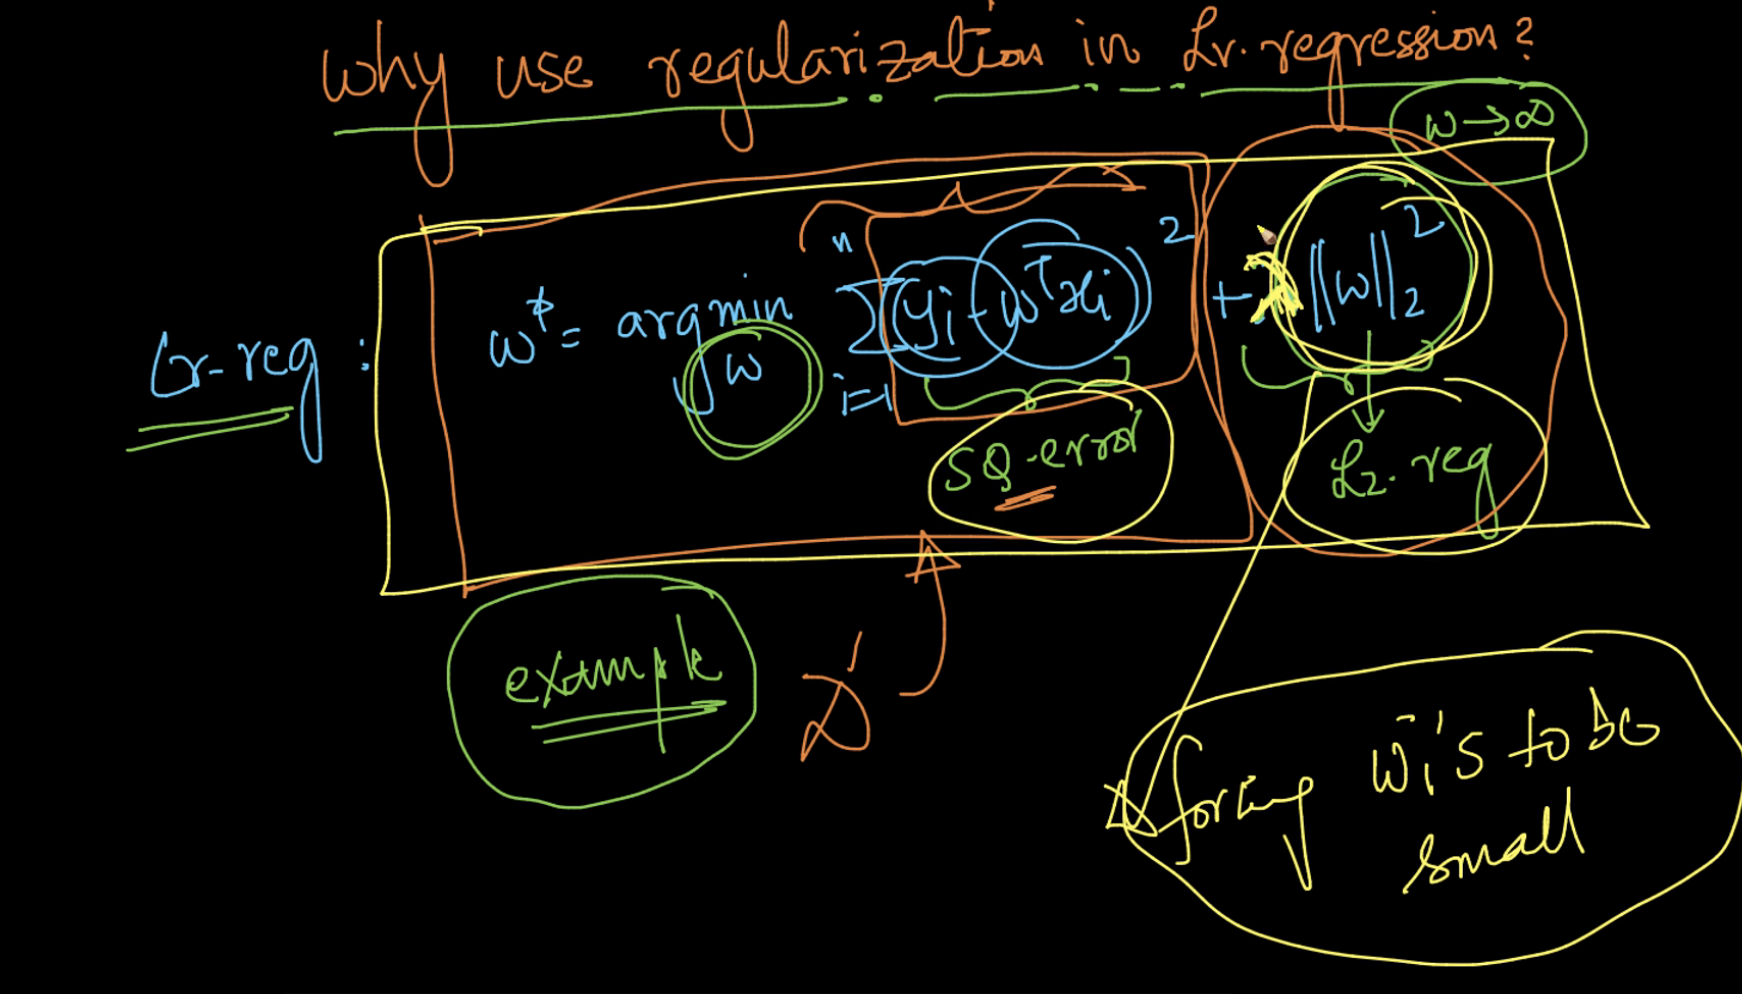 why use regularization in Lr. regression?
w → ∞
Lr-reg : w* = argmin_w Σ_{i=1}^{n} (yi - w^T xi)^2 + λ ||w||_2^2
SQ-error
L2-reg
example
D'
forcing wi's to be
small